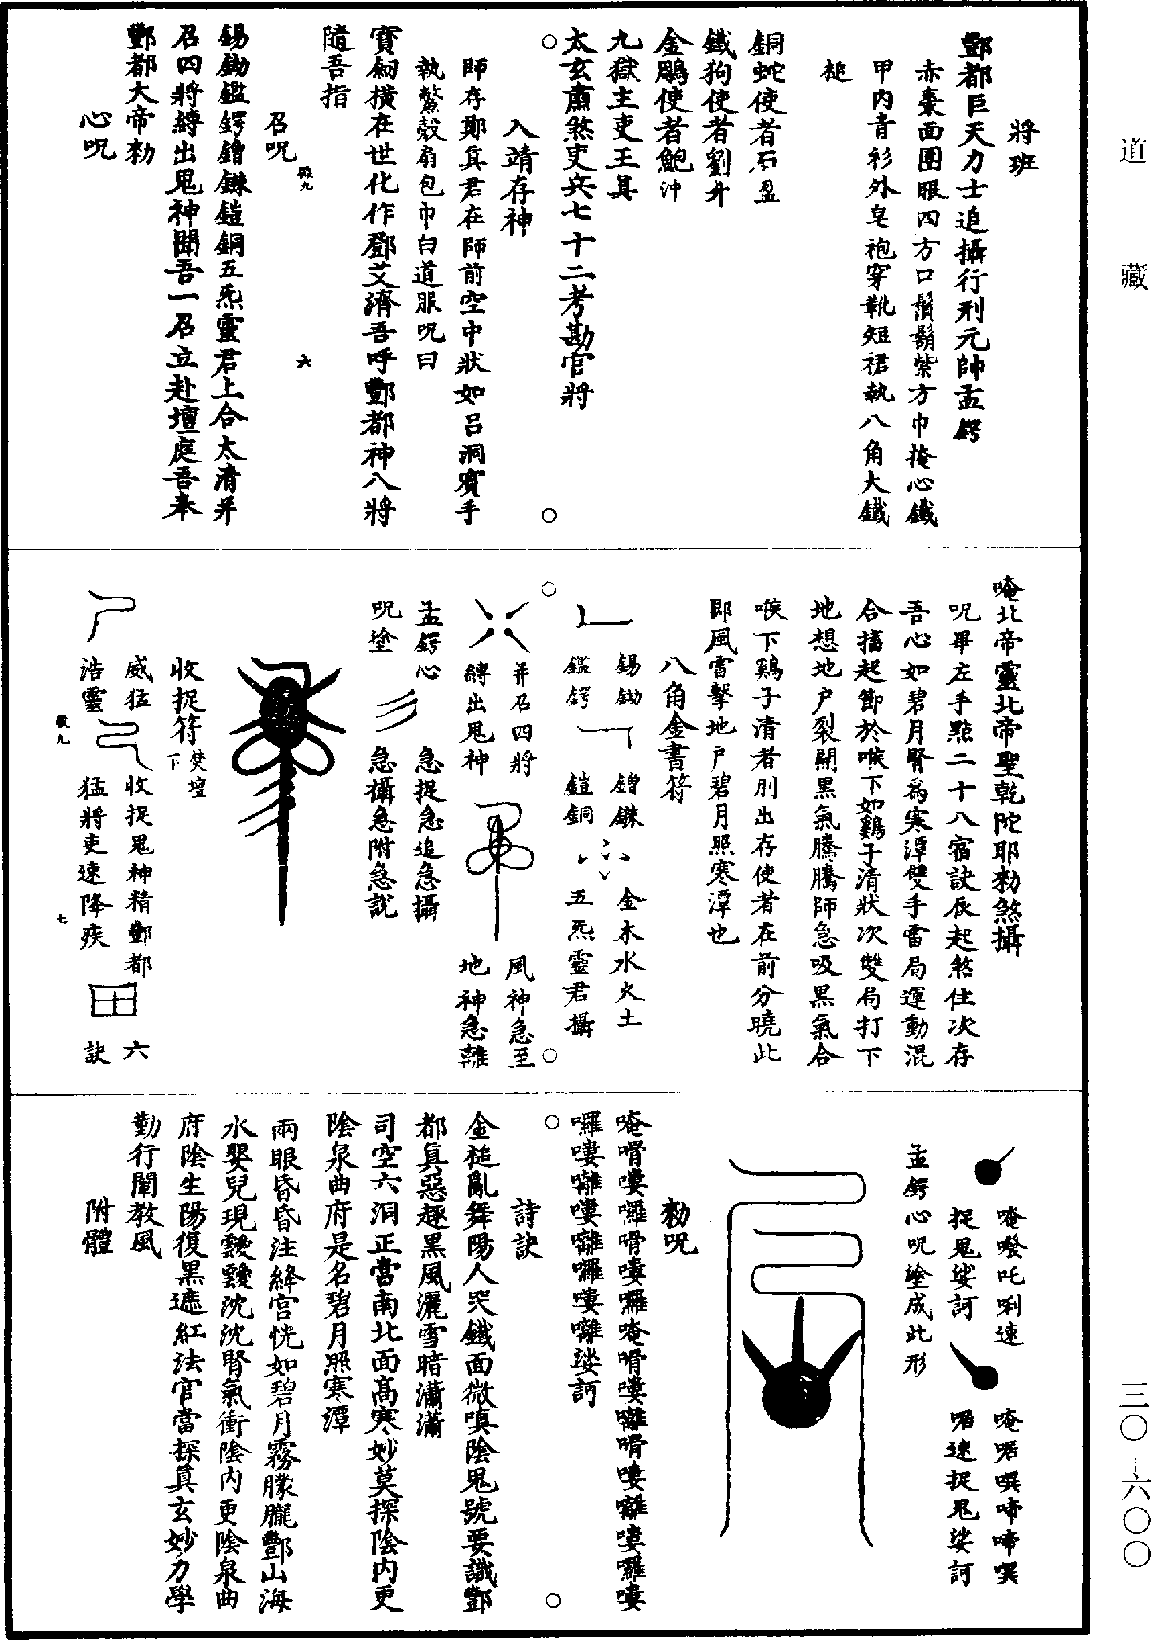 道藏
將班
酆都巨天力士追攝行刑元帥孟鍔
赤棗面團眼四方口鬚鬍紫方巾掩心鐵
甲内青衫外皂袍穿靴短裙執八角大鐵
槌
銅蛇使者石盈
鐵狗使者劉升
金鵰使者鮑沖
九獄主吏王真
太玄肅煞吏兵七十二考勘官將
入靖存神
師存鄭真君在師前空中狀如呂洞賓手
執鱉殼扇包巾白道服呪曰
寶劍橫在世化作鄧艾濟吾呼酆都神八將
隨吾指
召呪
錫鋤鑑鍔鐕鏁鎧銅五炁靈君上合太清并
召四將縛出鬼神聞吾一召立赴壇庭吾奉
酆都大帝勑
心呪
六
唵北帝靈北帝聖乾陀耶勑煞攝
呪畢左手點二十八宿訣辰起煞住次存
吾心如碧月腎爲寒潭雙手雷局運動混
合擂起節於喉下如鷄子清狀次雙局打下
地想地戶裂開黑氣騰騰師急吸黑氣合
喉下鷄子清者則出存使者在前分曉此
即風雷擊地戶碧月照寒潭也
八角金書符
錫鋤
鑑鍔
鐕鏁
鎧銅
金木水火土
五炁靈君攝
并召四將
縛出鬼神
風神急至
地神急離
孟鍔心
呪塗
急捉急追急攝
急攝急附急說
收捉符
焚壇下
威猛
浩靈
收捉鬼神精酆都
猛將吏速降疾
六
訣
七
唵𠸪吒唎速
捉鬼娑訶
唵㗃㗲啼啼㗲
㗃速捉鬼娑訶
孟鍔心呪塗成此形
勑呪
唵嗗嘍囉嗗嘍囉唵嗗嘍囉嗗嘍囉嘍囉嘍
囉嘍囉嘍囉囉嘍囉娑訶
詩訣
金槌亂舞陽人哭鐵面微嗔陰鬼號要識酆
都真惡趣黑風灑雪暗瀟瀟
司空六洞正當南北面高寒妙莫探陰内更
陰泉曲府是名碧月照寒潭
兩眼昏昏注絳宮恍如碧月霧朦朧酆山海
水嬰兒現靉靉沈沈腎氣衝陰内更陰泉曲
府陰生陽復黑遮紅法官當探真玄妙力學
勤行闡教風
附體
三〇-六〇〇